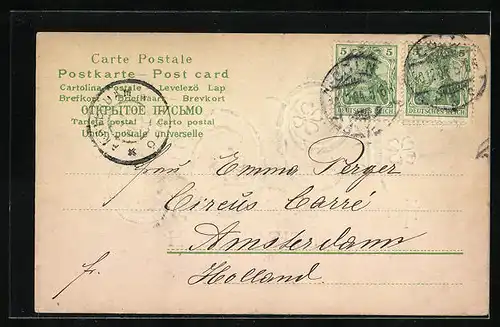 Carte Postale
Postkarte – Post card
Cartolina Postale – Levelezö Lap
Brefkort – Briefkaart – Brevkort
ОТКРЫТОЕ ПИСЬМО
Tarjeta postal / Carto postal
Union postale universelle
5 5
DEUTSCHES REICH
DEUTSCHES REICH
Frau Emma Perger
Circus Carré
Amsterdam
fr. Holland.